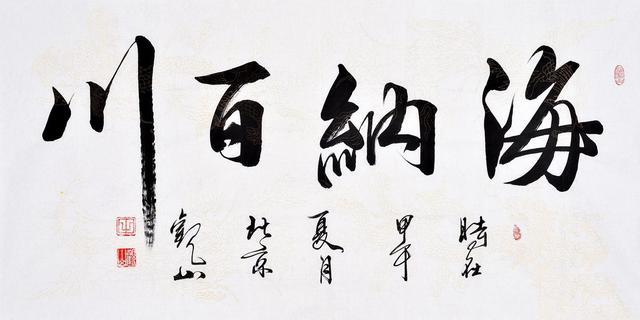 海納百川
時在甲午夏月北京觀山